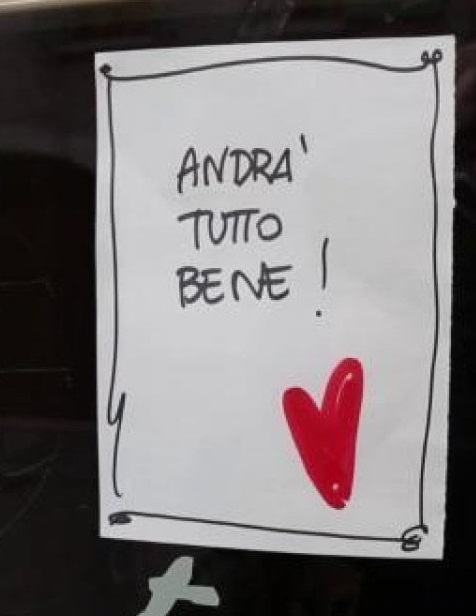 ANDRA'
TUTTO
BENE!